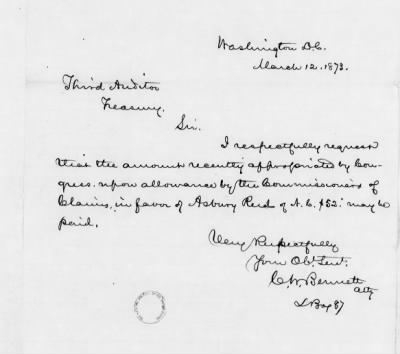 Washington D.C.
March 12. 1873.
Third Auditor
Treasury.
Sir.
I respectfully request
that the amount recently appropriated by Con-
gress. upon allowance by the Commissioners of
Claims, in favor of Asbury Reid of N.C. $52. may be
paid.
Very Respectfully
Your Obt. Servt.
C W. Bennett
Atty
L Box 87